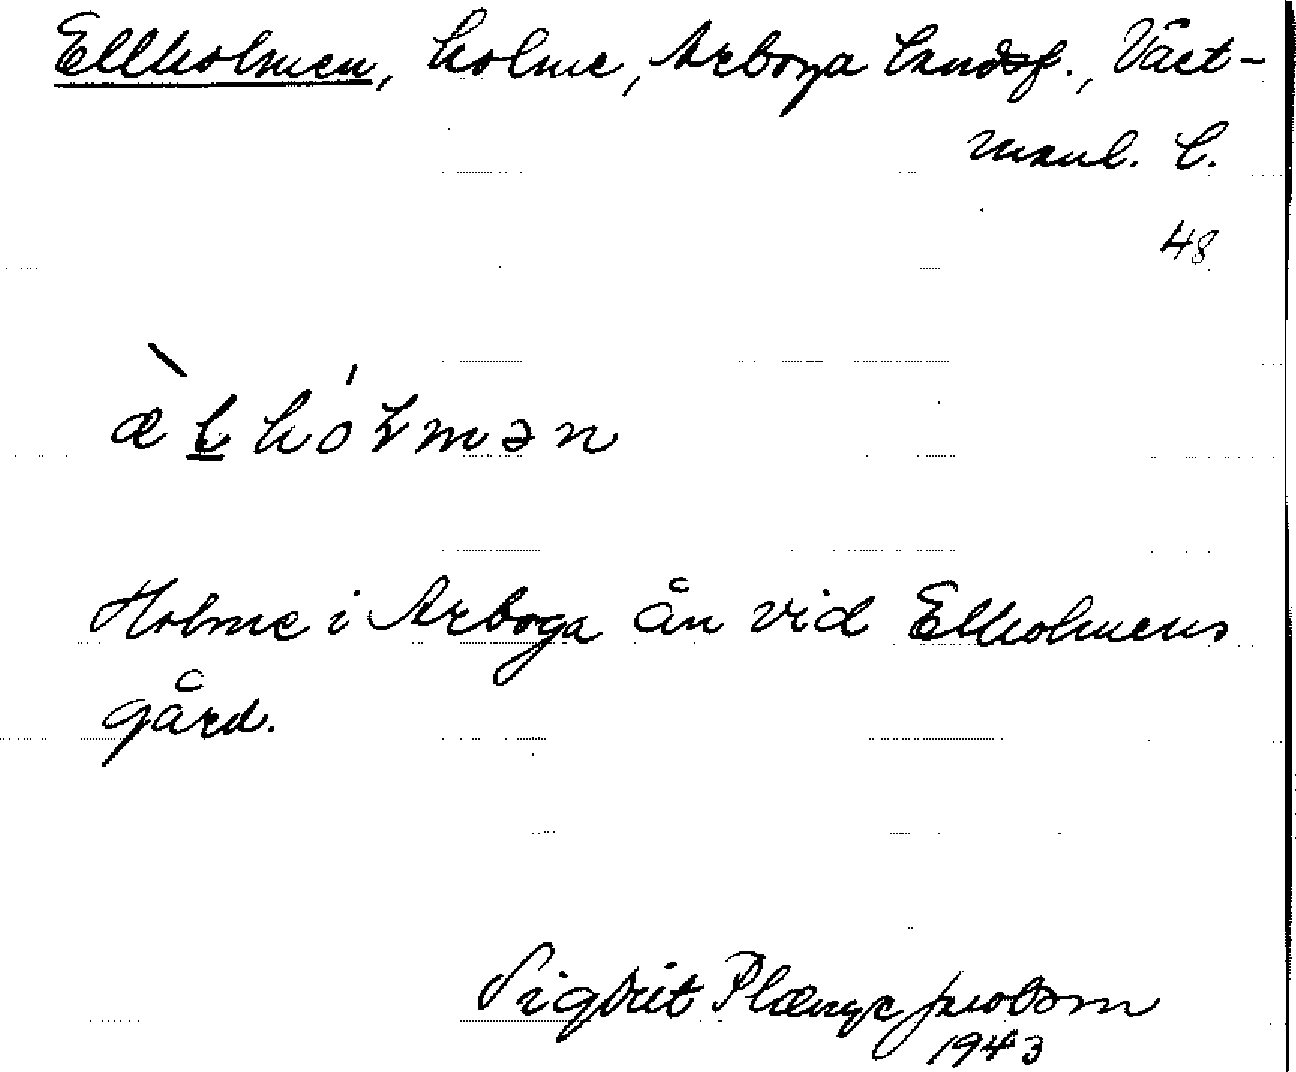 Ellholmen, holme, Arboga landsf., Väst-
manl. l.
48
æ̀l hólmən
Holme i Arboga ån vid Ellholmens
gård.
Sigbrit Plænge Jacobson
1943